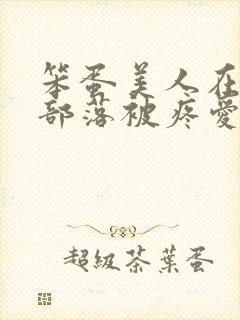 笨蛋美人在
部落被疼愛
超級茶葉蛋